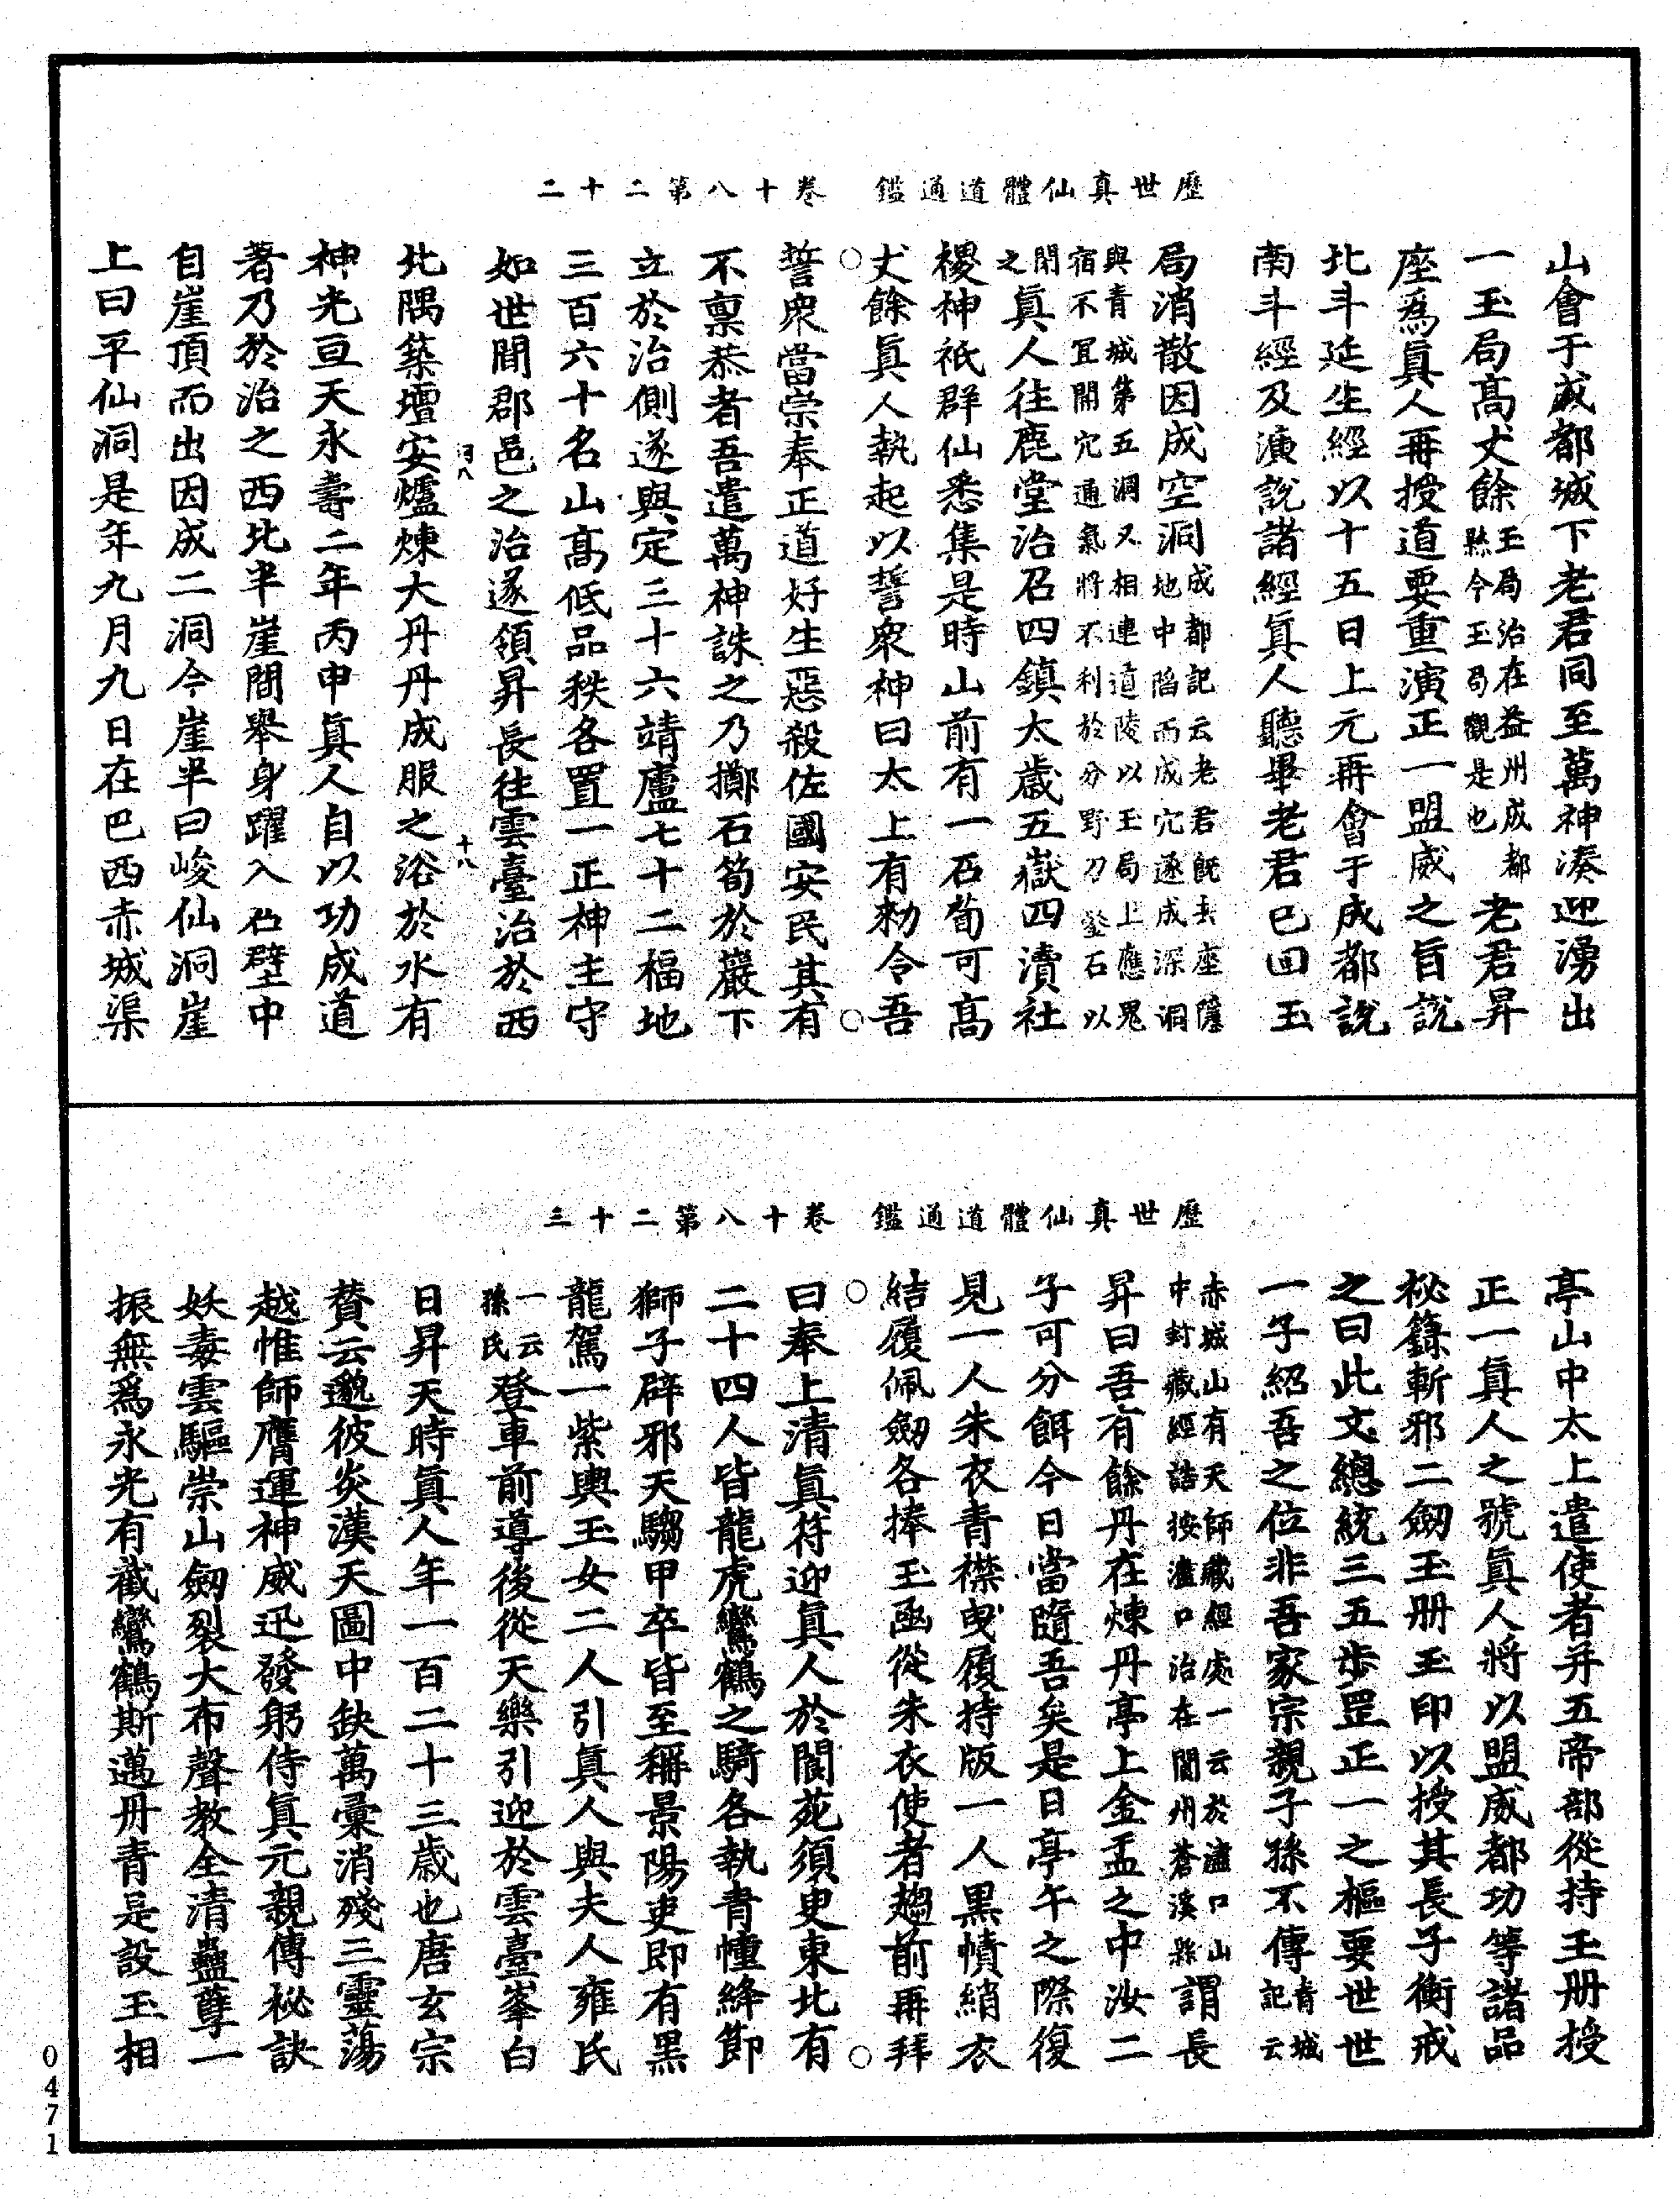 歷世真仙體道通鑑　卷十八第二十二
山會于成都城下老君同至萬神湊迎湧出
一玉局高丈餘玉局治在益州成都縣今玉局觀是也老君昇
座爲眞人再授道要重演正一盟威之旨說
北斗延生經以十五日上元再會于成都說
南斗經及演說諸經眞人聽畢老君已回玉
局消散因成空洞成都記云老君既去座隱地中陷而成穴遂成深洞
與青城第五洞又相連道陵以玉局上應鬼宿不宜開穴通氣將不利於分野乃鏨石以
閉之眞人往鹿堂治召四鎮太歲五嶽四瀆社
稷神祇群仙悉集是時山前有一石筍可高
丈餘眞人執起以誓衆神曰太上有勑令吾
○　○
誓衆當崇奉正道好生惡殺佐國安民其有
不稟恭者吾遣萬神誅之乃擲石筍於巖下
立於治側遂與定三十六靖廬七十二福地
三百六十名山高低品秩各置一正神主守
如世間郡邑之治遂領昇長往雲臺治於西
十八
北隅築壇安爐煉大丹丹成服之浴於水有
神光亘天永壽二年丙申眞人自以功成道
著乃於治之西北半崖間舉身躍入石壁中
自崖頂而出因成二洞今崖半曰峻仙洞崖
上曰平仙洞是年九月九日在巴西赤城渠
歷世真仙體道通鑑　卷十八第二十三
亭山中太上遣使者并五帝部從持玉册授
正一眞人之號眞人將以盟威都功等諸品
祕籙斬邪二劒玉册玉印以授其長子衡戒
之曰此文總統三五步罡正一之樞要世世
一子紹吾之位非吾家宗親子孫不傳青城記云
赤城山有天師藏經處一云於瀘口山中封藏經誥按瀘口治在閬州蒼溪縣謂長
昇曰吾有餘丹在煉丹亭上金盂之中汝二
子可分餌今日當隨吾矣是日亭午之際復
見一人朱衣青襟曳履持版一人黑幘綃衣
結履佩劒各捧玉函從朱衣使者趨前再拜
○　○
曰奉上清眞符迎眞人於閬苑須臾東北有
二十四人皆龍虎鸞鶴之騎各執青幢絳節
獅子辟邪天騶甲卒皆至稱景陽吏即有黑
龍駕一紫輿玉女二人引眞人與夫人雍氏
一云孫氏登車前導後從天樂引迎於雲臺峯白
日昇天時眞人年一百二十三歲也唐玄宗
贊云邈彼炎漢天圖中缺萬彙消殘三靈蕩
越惟師膺運神威迅發躬侍眞元親傳祕訣
妖毒雲驅崇山劒裂大布聲教全清蠱孽一
振無爲永光有截鸞鶴斯邁丹青是設玉相
0471